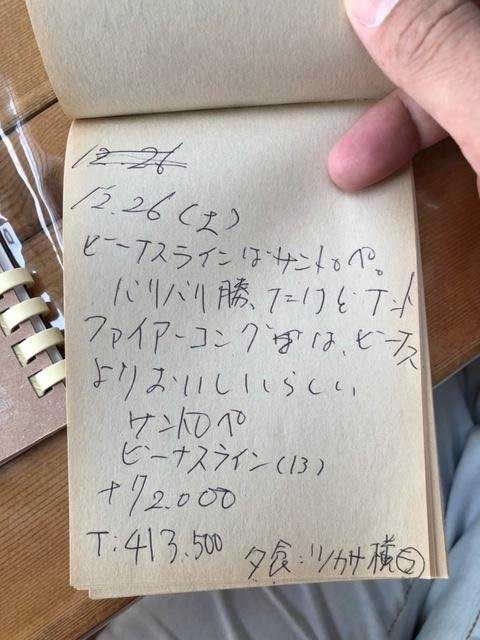 12.26
12.26(土)
ビーナスラインはサントロペ。
バリバリ勝、たけどナント
ファイアーコングは、ビーナス
よりおいしいらしい
サントロペ
ビーナスライン(13)
+72.000
T:413.500
夕食:ツカサ様